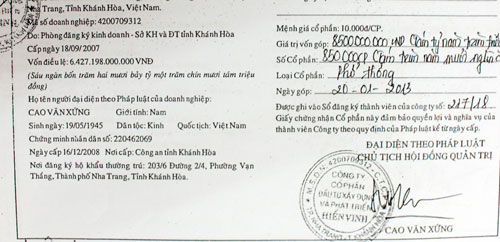 Nha Trang, Tỉnh Khánh Hòa, Việt Nam
Mã số doanh nghiệp: 4200709312
Do: Phòng đăng ký kinh doanh - Sở KH và ĐT tỉnh Khánh Hòa
Cấp ngày 18/09/2007
Vốn điều lệ: 6.427.198.000.000 VNĐ
(Sáu ngàn bốn trăm hai mươi bảy tỷ một trăm chín mươi tám triệu
đồng)
Họ tên người đại diện theo Pháp luật của doanh nghiệp:
CAO VĂN XỨNG Giới tính: Nam
Sinh ngày: 19/05/1945 Dân tộc: Kinh Quốc tịch: Việt Nam
Chứng minh nhân dân số: 220462069
Ngày cấp 16/12/2008 Nơi cấp: Công an tỉnh Khánh Hòa
Nơi đăng ký hộ khẩu thường trú: 203/6 Đường 2/4, Phường Vạn
Thắng, Thành phố Nha Trang, Tỉnh Khánh Hòa.
Mệnh giá cổ phần: 10.000đ/CP.
Giá trị vốn góp: 8500.000.000
Số Cổ phần: 850.000CP
Loại Cổ phần: Phổ thông
Ngày góp: 20-01-2013
Được ghi vào Sổ đăng ký thành viên của công ty số: 217/18
Giấy chứng nhận Cổ phần này đảm bảo quyền lợi và nghĩa vụ của
thành viên Công ty theo quy định của Pháp luật kể từ ngày cấp.
ĐẠI DIỆN THEO PHÁP LUẬT
CHỦ TỊCH HỘI ĐỒNG QUẢN TRỊ
M.S.D.N: 4200709312 - C.T.C.P
CÔNG TY
CỔ PHẦN
ĐẦU TƯ XÂY DỰNG
VÀ PHÁT TRIỂN
HIỂN VINH
CAO VĂN XỨNG